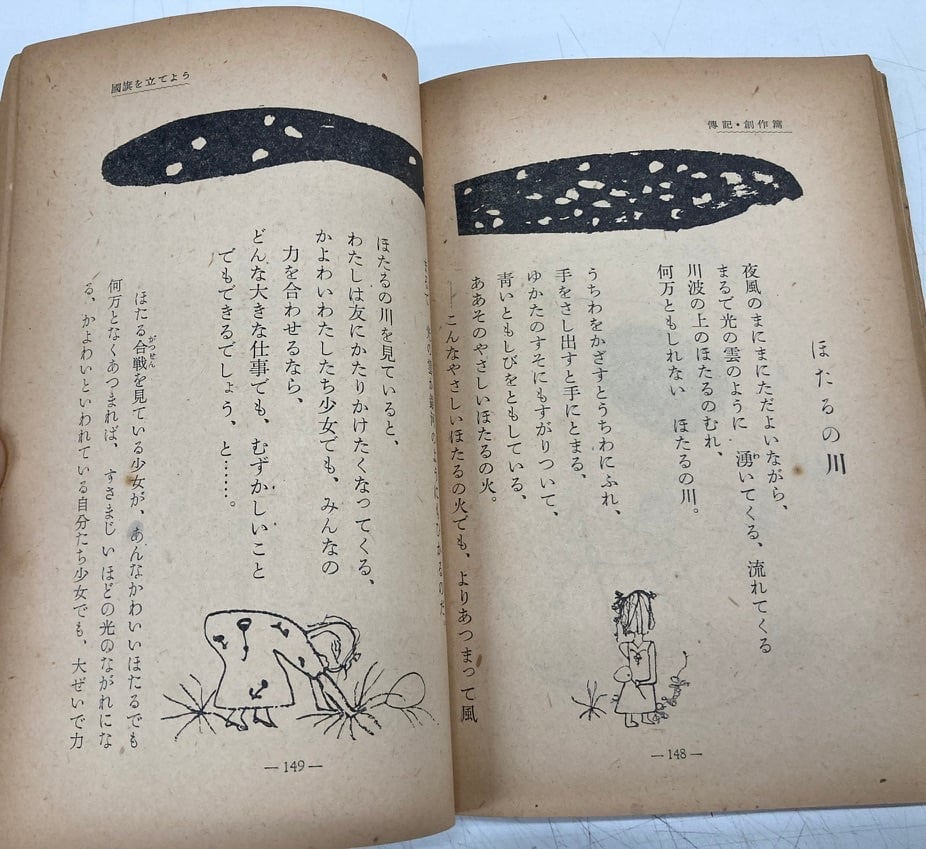 傳記・創作篇
ほたるの川
夜風のまにまにただよいながら、
まるで光の雲のように 湧いてくる、流れてくる
川波の上のほたるのむれ、
何万ともしれない ほたるの川。
うちわをかざすとうちわにふれ、
手をさし出すと手にとまる、
ゆかたのすそにもすがりついて、
靑いともしびをともしている、
ああそのやさしいほたるの火。
―こんなやさしいほたるの火でも、よりあつまって風
―148―
國旗を立てよう
ほたるの川を見ていると、
わたしは友にかたりかけたくなってくる、
かよわいわたしたち少女でも、みんなの
力を合わせるなら、
どんな大きな仕事でも、むずかしいこと
でもできるでしょう、と……。
ほたる合戦を見ている少女が、あんなかわいいほたるでも
がっせん
何万となくあつまれば、すさまじいほどの光のながれにな
る、かよわいといわれている自分たち少女でも、大ぜいで力
―149―